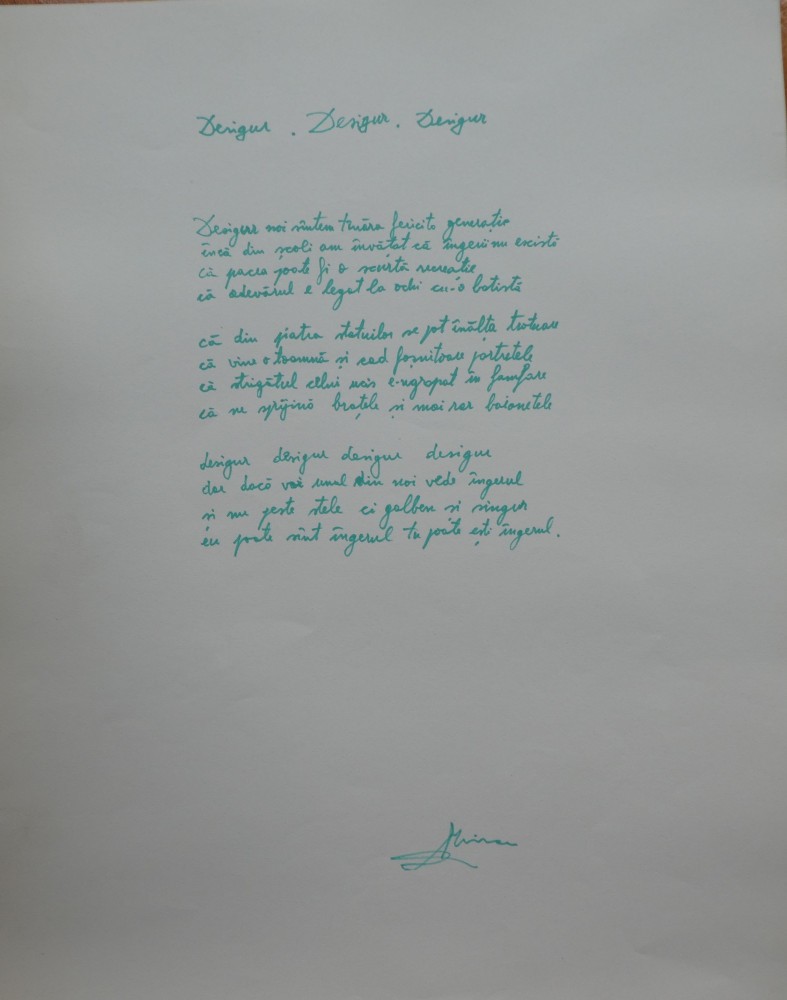 Desigur . Desigur . Desigur
Desigur noi sîntem tînăra fericita generație
încă din școli am învățat că îngerii nu există
că pacea poate fi o scurtă recreație
că adevărul e legat la ochi cu-o batistă
că din piatra statuilor se pot înălța trotuare
că vine o toamnă și cad foșnitoare portretele
că strigătul celui ucis e-ngropat în fanfare
că ne sprijină brațele și mai rar baionetele
desigur desigur desigur desigur
dar dacă vai unul din noi vede îngerul
și nu peste stele ci galben și singur
eu poate sînt îngerul tu poate ești îngerul.